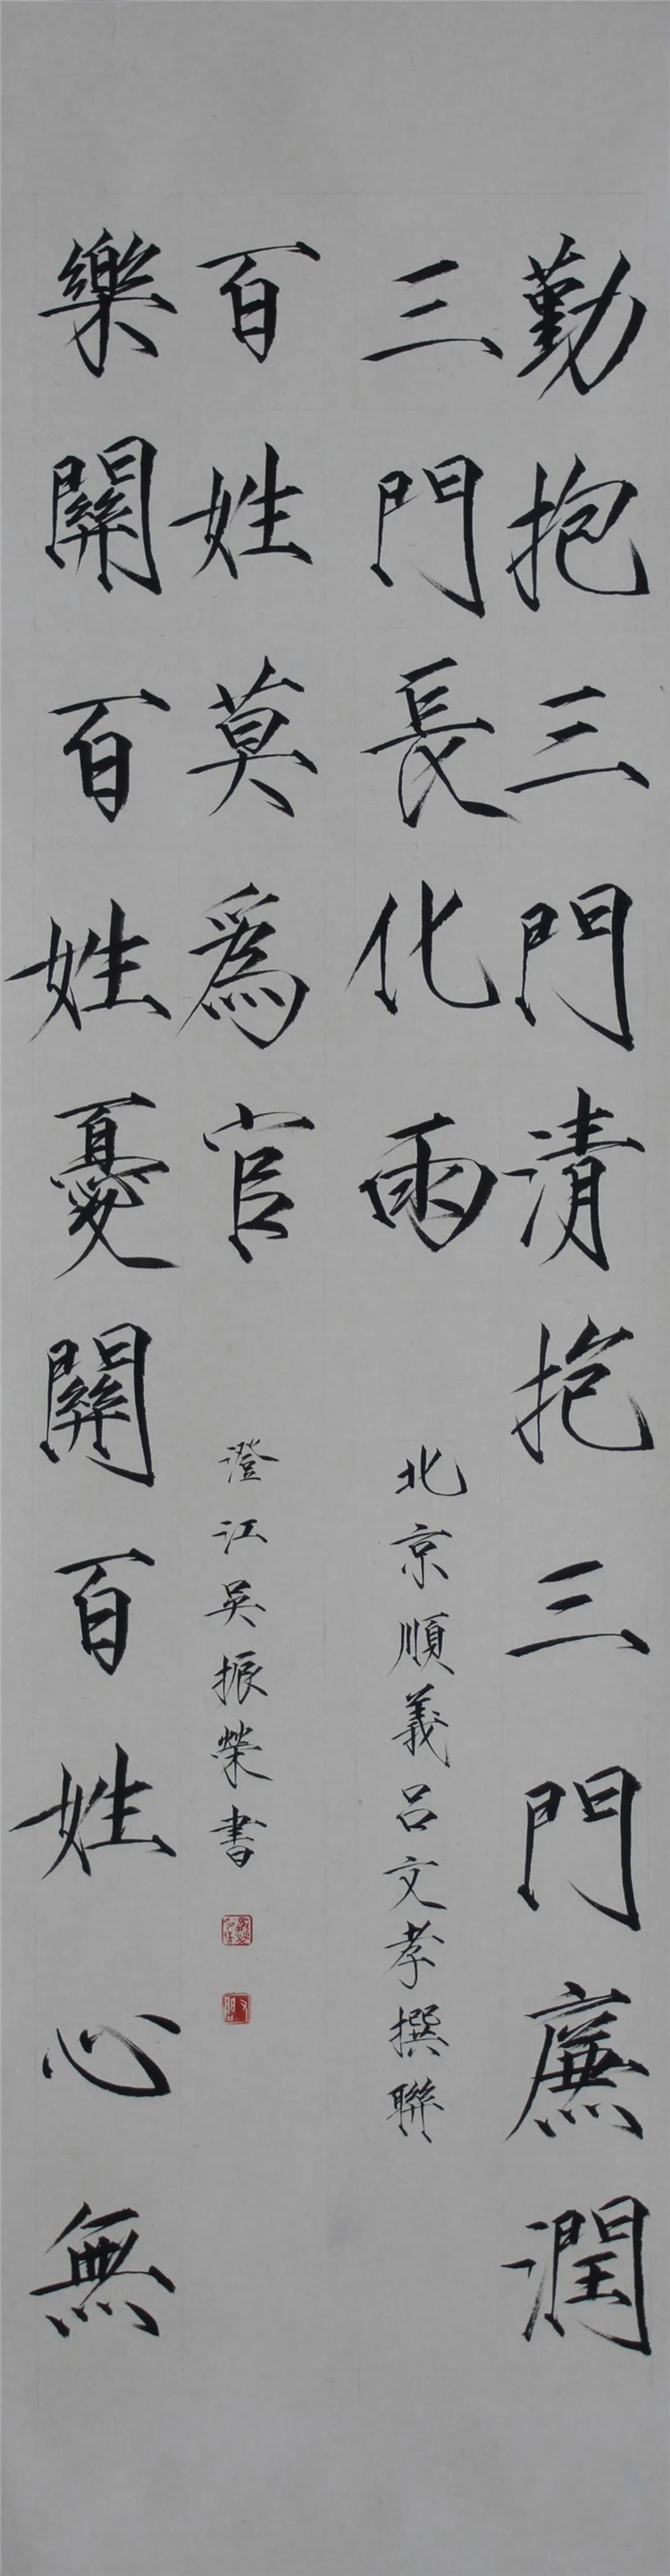 勤抱三門清抱三門廉潤
三門長化雨
北京順義呂文孝撰聯
樂關百姓憂關百姓心無
百姓莫爲官
澄江吳振榮書